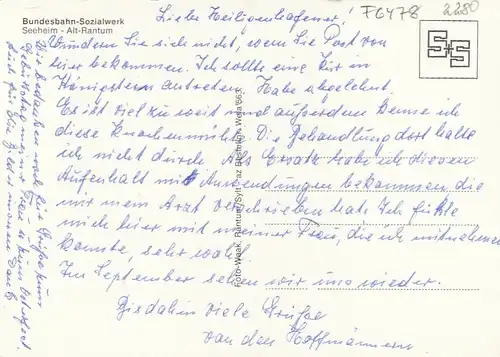 Bundesbahn-Sozialwerk
Seeheim - Alt-Rantum
F6478
2280
S+S
Liebe Heiligenhafener!
Wundern Sie sich nicht, wenn Sie Post von
hier bekommen. Ich sollte eine Kur in
Königstern antreten. Habe abgelehnt.
Es ist viel zu weit und außerdem kenne ich
diese Knochenmühle. Die Behandlung dort halte
ich nicht durch. Als Ersatz habe ich diesen
Aufenthalt mit Anwendungen bekommen, die
mir mein Arzt verschrieben hat. Ich fühle
mich hier mit meiner Frau, die ich mitnehmen
konnte, sehr wohl.
Im September sehen wir uns wieder.
Bis dahin viele Grüße
von den Hoffmännern
Wir bedanken noch für Grüße zum
Geburtstag meiner Frau u. zum Osterfest.
Auch für die Bilder unseren Dank.
Foto-Weak, Rantum/Sylt